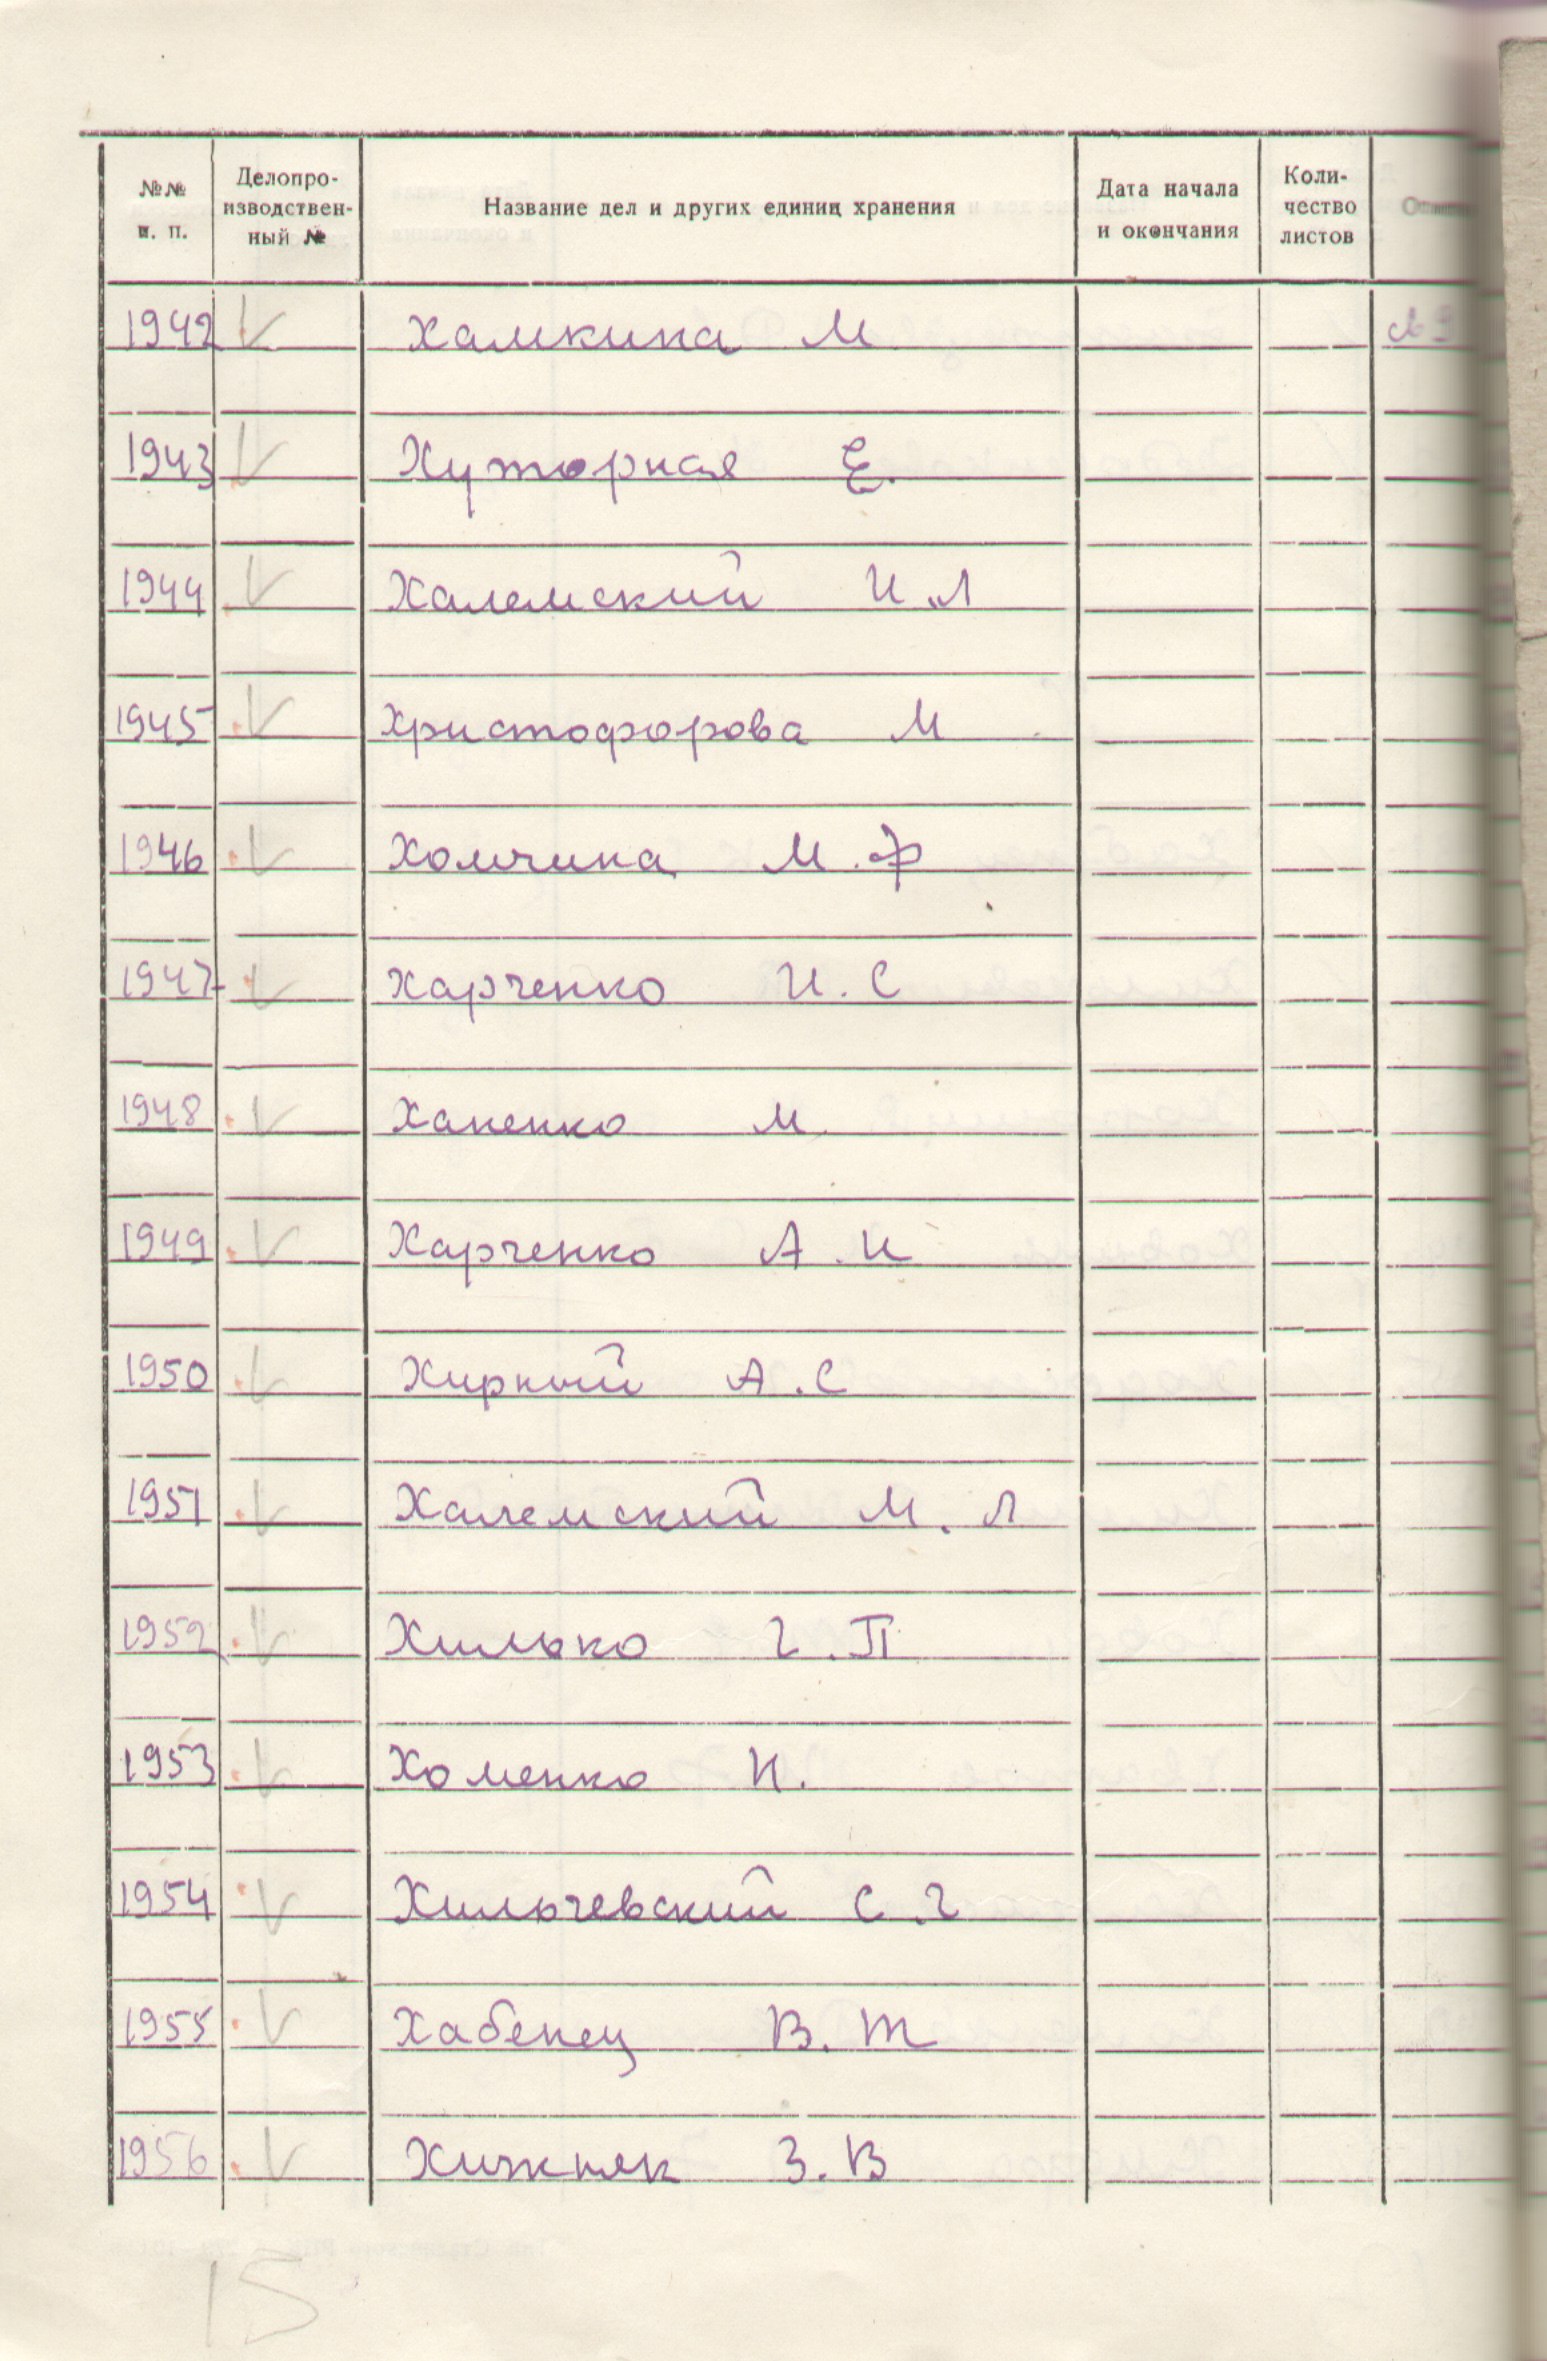 №№ п. п. Делопроизводственный № Название дел и других единиц хранения Дата начала и окончания Количество листов
1942 Хамкина М
1943 Хуторная Е.
1944 Халемский И.Л
1945 Христофорова М
1946 Хомчина М.Ф
1947 Харченко И.С
1948 Ханенко М
1949 Харченко А.И
1950 Хирный А.С
1951 Халемский М.Л
1952 Хилько Г.П
1953 Хоменко И.
1954 Хильчевский С.Г
1955 Хабенец В.Т
1956 Хижняк З.В
15